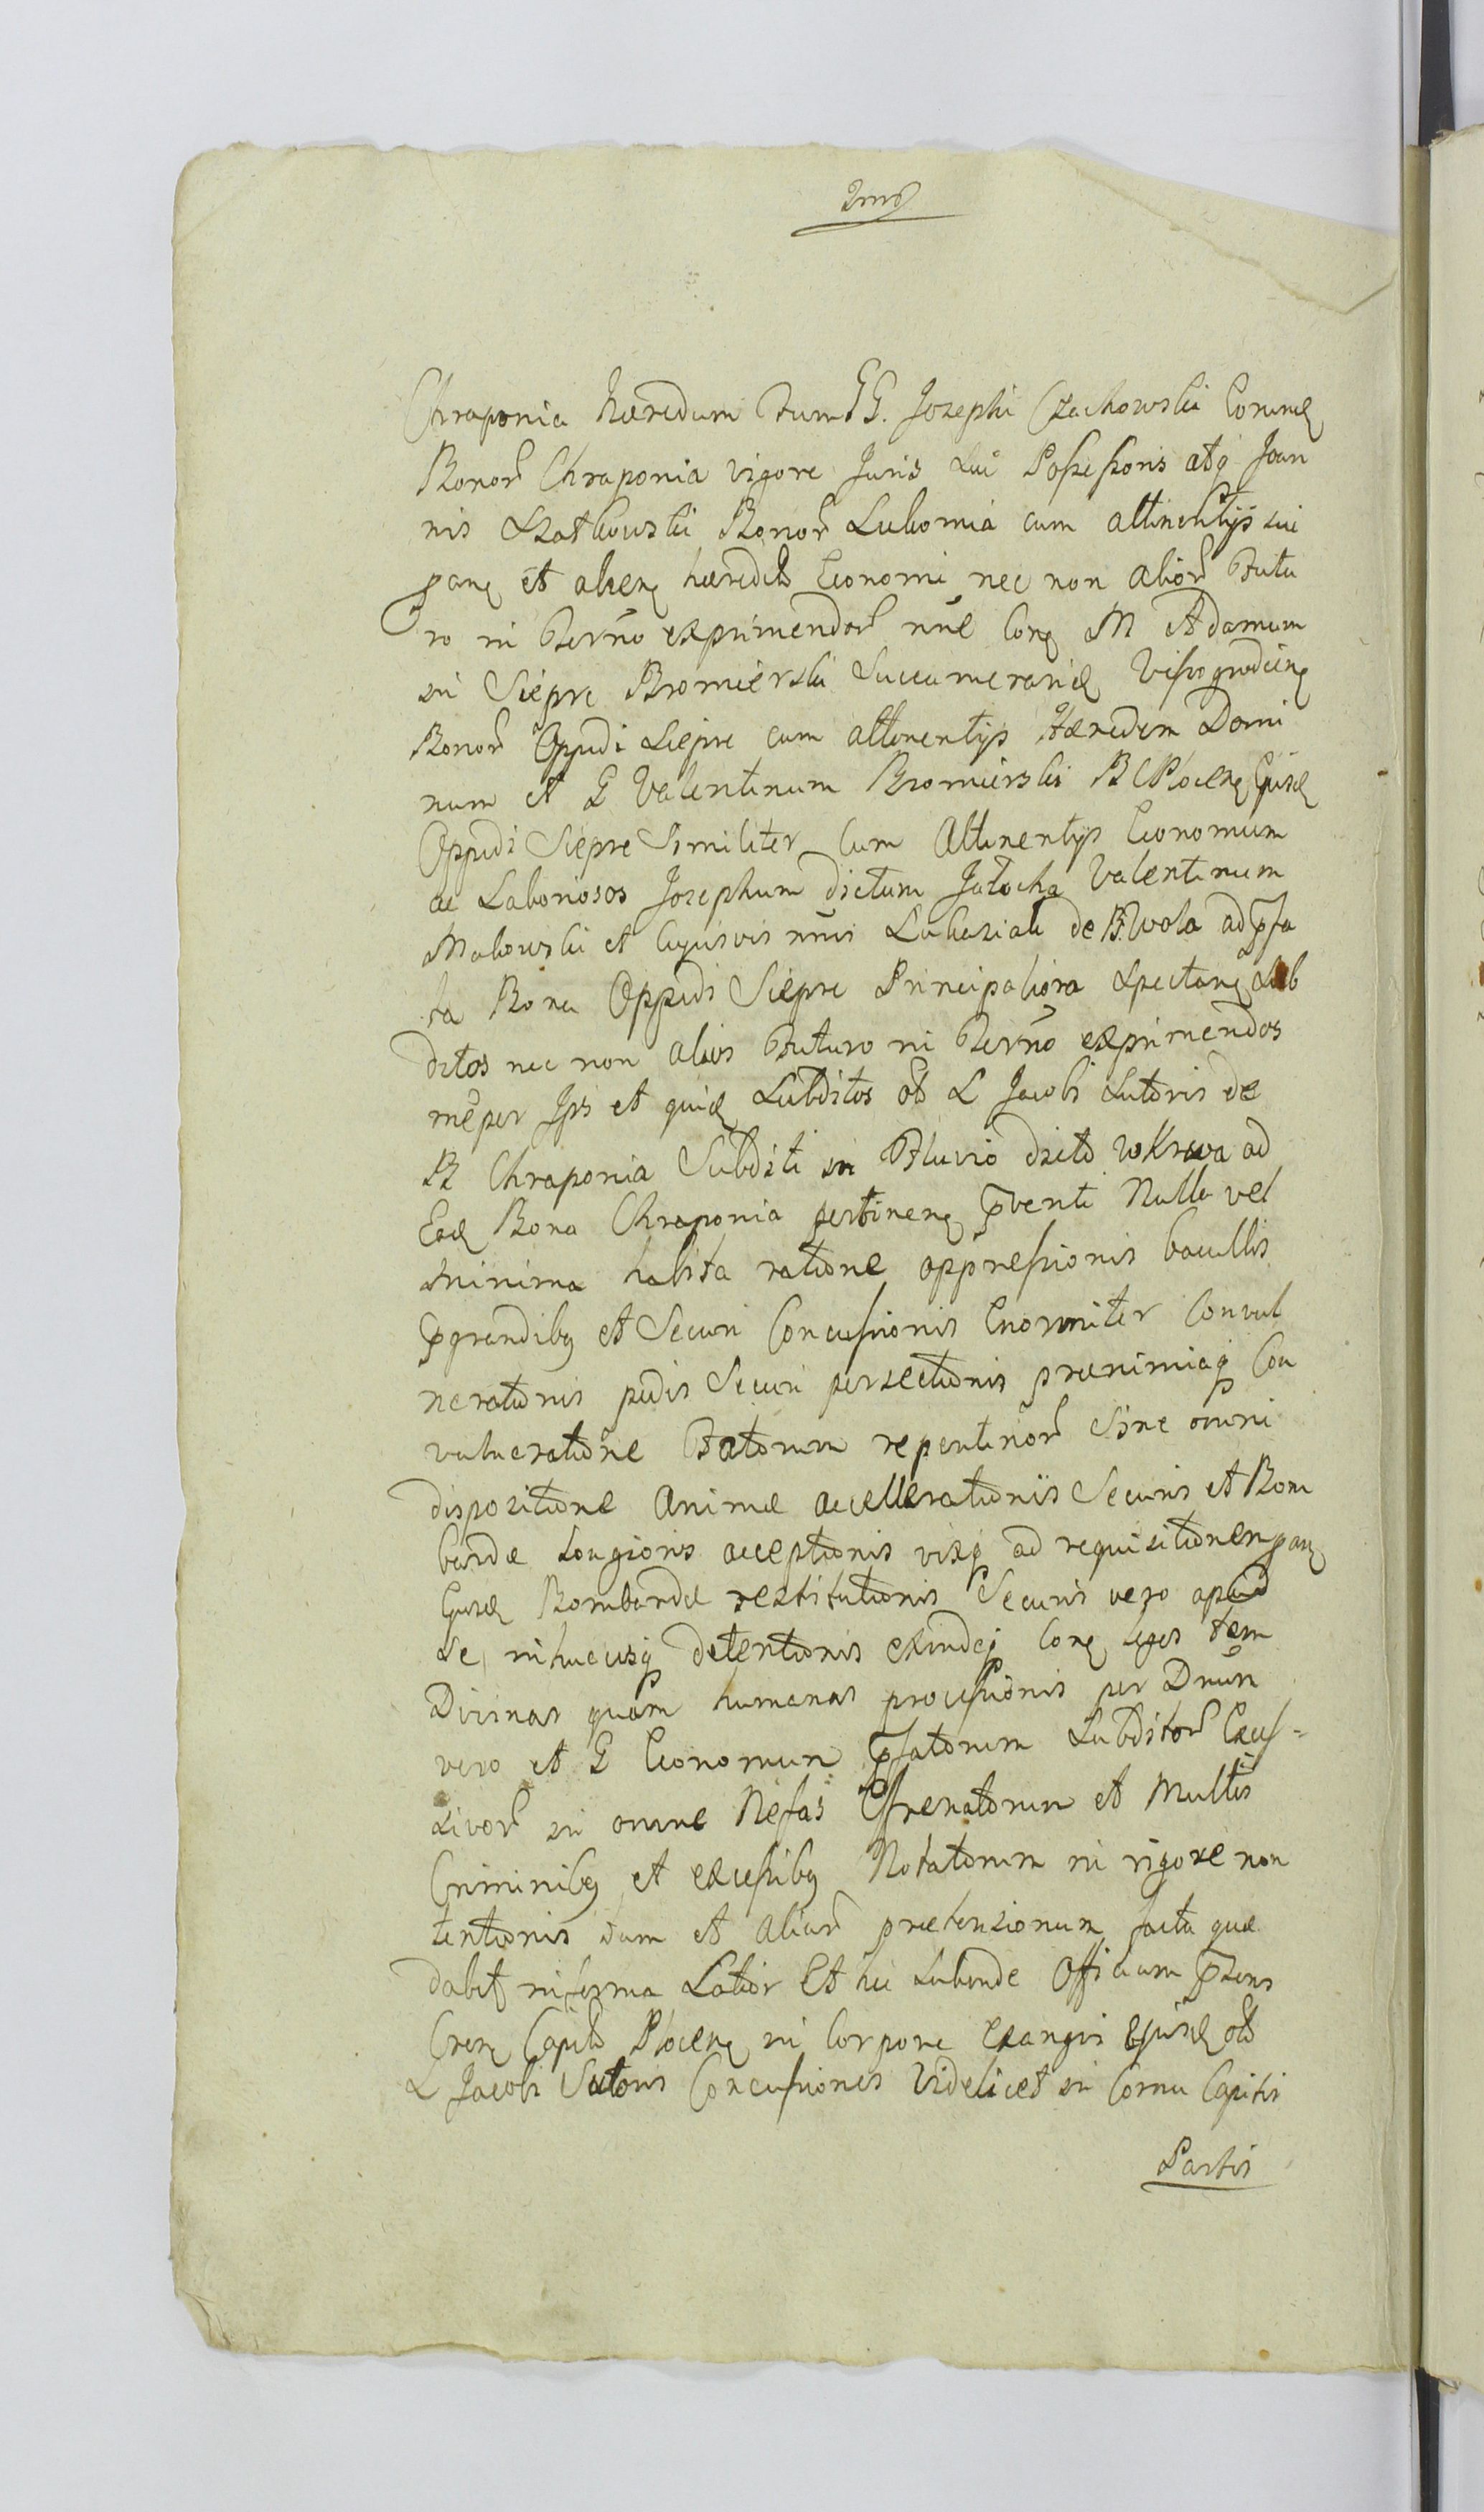 2mo
Chraponia hæredum tum GG. Josephi Czachowski Eorund
Bonor Chraponia vigore Juris sui Possessoris atq Joan
nis Szatkowski Bonor Lubomia cum attinentijs sui
parte et alien hæredit Economi nec non alior Futu
ro in Termo exprimendor con M Adamum
in Siepre Bromierski Succamerarid Visogrodien
Bonor Oppidi Siepre cum attinentijs Hæredem Domi
num et G Valentinum Bromierski B C Plocen Ejusd
Oppidi Siepre Similiter cum Attinentijs Economum
ac Laboriosos Josephum dictum Jatocha Valentinum
Makowski et cujusvis Lukasiak de B. Wola ad psa
ta Bona Oppidi Siepre Principaliora spectan Sub
ditos nec non alios Futuro in Termo exprimendos
per Ipsi et quid Subditos ob L Jacobi Sutoris de
B Chraponia Subditi in Fluvio dicto Wkrwa ad
Ead Bona Chraponia pertinen pventi Nulla vel
minima habita ratione oppressionis bacullis
pgrandibq et Securi Concussionis Enormiter Convul
nerationis pedis Securi persectionis prænimiaq Con
vulneratione Fatorum repentinor Sine omni
dispositione Animæ accellerationiis Securis et Bom
bardæ Longioris acceptionis visq ad requisitionem par
Ejusd Bombardæ restitutionis Securis vero apud
se in hucusq detentionis exindeq con leges tam
Divinas quam humanas processionis per Dnum
vero et G Economum psatorum Subditor Exces-
sivor in omne Nefas Effrenatorum et Multis
Criminibq et excessibq Notatorum in rigore non
tentionis tum et aliar prætensionum facta quæ
dabit in forma Latior Et hic subinde Officium psens
Cren Capit Plocen in Corpore Exangvi Ejusd ob
L Jacobi Sutoris Concussiones Videlicet in Cornu Capitis
Partis